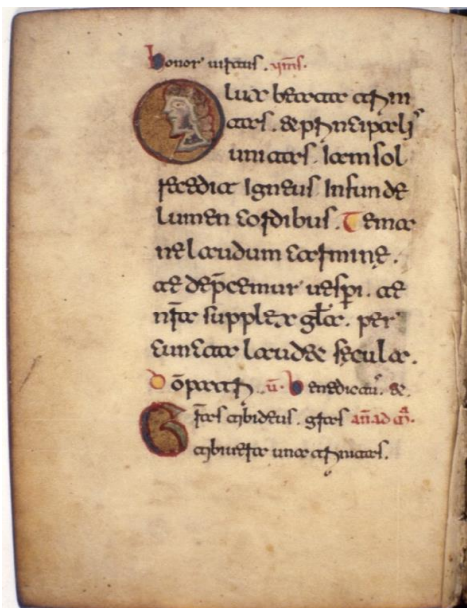 honor uirtus . ymns.
O lux beata trin
itas . & principalis
unitas . Iam sol
recedit igneus Infunde
lumen cordibus . Te ma
ne laudum carmine .
te dep̄cemur uesp̄i . te
nr̄a supplex gl̄a . per
cuncta laudet secula .
 v̄. Benedicam̄. de
Gr̄as tibi deus . gr̄as an̄ ad m̄.
tibi uera una trinitas .